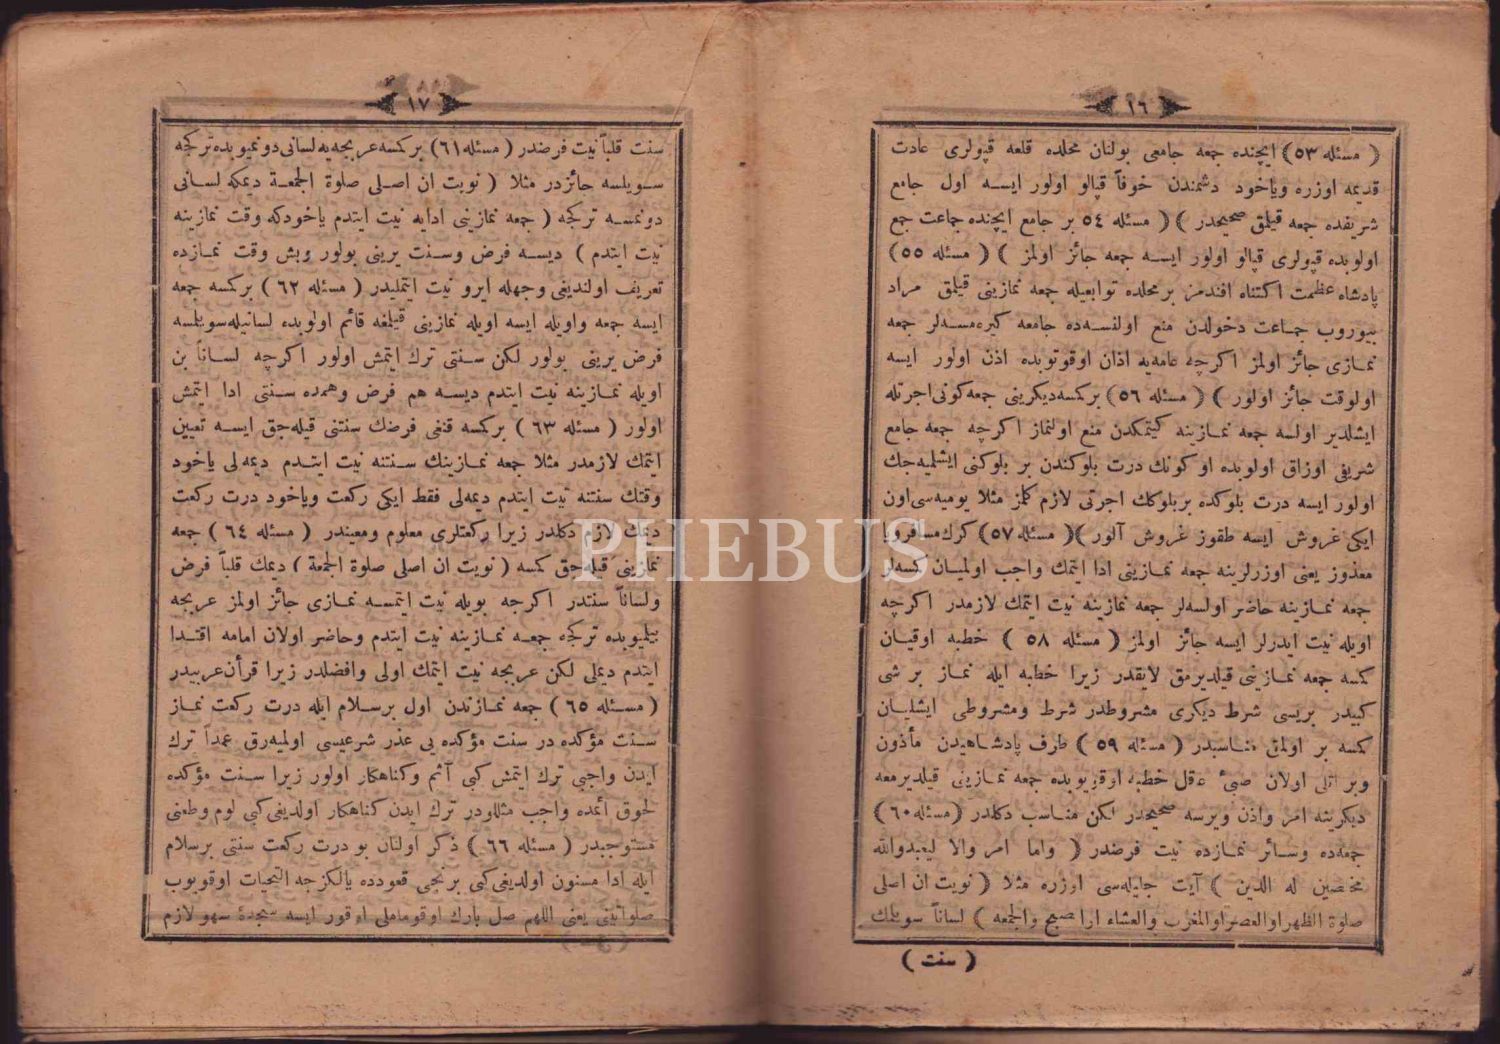 ١٦
( مسئله ٥٣) ایچنده جمعه جامعی بولنان محلده قلعه قپولری عادت
قدیمه اوزره ویاخود دشمندن خوفاً قپالو اولور ایسه اول جامع
شریفده جمعه قیلمق صحیحدر ) ( مسئله ٥٤ بر جامع ایچنده جماعت جمع
اولوبده قپولری قپالو اولور ایسه جمعه جائز اولمز ) ( مسئله ٥٥)
پادشاه عظمت اکتناه افندمز بر محلده توابعیله جمعه نمازینی قیلمق مراد
بیوروب جماعت دخولدن منع اولنسه‌ده جامعه کیره‌مسه‌لر جمعه
نمازی جائز اولمز اکرچه عامه‌یه اذان اوقوتوبده اذن اولور ایسه
اولوقت جائز اولور ) ( مسئله ٥٦) برکمسه دیکرینی جمعه کونی اجرتله
ایشلدیر اولسه جمعه نمازینه کیتمکدن منع اولنماز اکرچه جمعه جامع
شریفی اوزاق اولوبده او کونك درت بلوکندن بر بلوکنی ایشلمیه‌جك
اولور ایسه درت بلوکده بر بلوکك اجرتی لازم کلمز مثلا یومیه‌سی اون
ایکی غروش ایسه طقوز غروش آلور )( مسئله ٥٧) کرك مسافر ویا
معذور یعنی اوزرلرینه جمعه نمازینی ادا ایتمك واجب اولمیان کمسه‌لر
جمعه نمازینه حاضر اولسه‌لر جمعه نمازینه نیت ایتمك لازمدر اکرچه
اویله نیت ایدرلر ایسه جائز اولمز ( مسئله ٥٨ ) خطبه اوقیان
کمسه جمعه نمازینی قیلدیرمق لایقدر زیرا خطبه ایله نماز بر شی
کبیدر بریسی شرط دیکری مشروطدر شرط ومشروطی ایشلیان
کمسه بر اولمق مناسبدر ( مسئله ٥٩ ) طرف پادشاهیدن مأذون
وبر اتلی اولان صبیء عاقل خطبه اوقویوبده جمعه نمازینی قیلدیرمغه
دیکرینه امر واذن ویرسه صحیحدر لکن مناسب دکلدر (مسئله ٦٠)
جمعه‌ده وسائر نمازده نیت فرضدر ( وما امر والا لیعبدوالله
مخلصین له الدین ) آیت جلیله‌سی اوزره مثلا ( نویت ان اصلی
صلوة الظهر اوالعصر اوالمغرب والعشاء ارا صبح والجمعه ) لساناً سویلمك
( سنت )
١٧
سنت قلباً نیت فرضدر ( مسئله ٦١) برکمسه عربجه‌یه لسانی دونمیوبده ترکجه
سویلسه جائزدر مثلا ( نویت ان اصلی صلوة الجمعة دیمکه لسانی
دونمسه ترکجه ( جمعه نمازینی ادایه نیت ایتدم یاخودکه وقت نمازینه
نیت ایتدم ) دیسه فرض وسنت یرینی بولور وبش وقت نمازده
تعریف اولندیغی وجهله ایرو نیت ایتملیدر ( مسئله ٦٢ ) برکمسه جمعه
ایسه جمعه واویله ایسه اویله نمازینی قیلمغه قائم اولوبده لسانیله سویلسه
فرض یرینی بولور لکن سنتی ترك ایتمش اولور اکرچه لساناً بن
اویله نمازینه نیت ایتدم دیسه هم فرض وهمده سنتی ادا ایتمش
اولور ( مسئله ٦٣ ) برکمسه قنغی فرضك سنتنی قیله‌جق ایسه تعیین
ایتمك لازمدر مثلا جمعه نمازینك سنتنه نیت ایتدم دیمه‌لی یاخود
وقتك سنتنه نیت ایتدم دیمه‌لی فقط ایکی رکعت ویاخود درت رکعت
دیمك لازم دکلدر زیرا رکعتلری معلوم ومعیندر ( مسئله ٦٤ ) جمعه
نمازینی قیله‌جق کمسه ( نویت ان اصلی صلوة الجمعة ) دیمك قلباً فرض
ولساناً سنتدر اکرچه بویله نیت ایتمسه نمازی جائز اولمز عربجه
بیلمیوبده ترکجه جمعه نمازینه نیت ایتدم وحاضر اولان امامه اقتدا
ایتدم دیملی لکن عربجه نیت ایتمك اولی وافضلدر زیرا قرأن عربیدر
( مسئله ٦٥ ) جمعه نمازندن اول برسلام ایله درت رکعت نماز
سنت مؤکده در سنت مؤکده یی عذر شرعیسی اولمیه‌رق عمداً ترك
ایدن واجبی ترك ایتمش کبی آثم وکناهکار اولور زیرا سنت مؤکده
لحوق اثمده واجب مثللودر ترك ایدن کناهکار اولدیغی کبی لوم وطعنی
مستوجبدر ( مسئله ٦٦ ) ذکر اولنان بو درت رکعت سنتی برسلام
ایله ادا مسنون اولدیغی کبی برنجی قعودده یالکزجه التحیات اوقویوب
صلواتینی یعنی اللهم صل بارك اوقوماملی اوقور ایسه سجدهٔ سهو لازم
PHEBUS